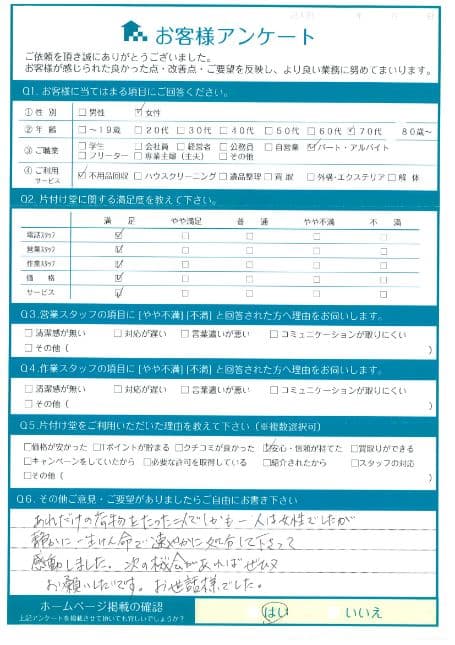 お客様アンケート
ご依頼を頂き誠にありがとうございました。
お客様が感じられた良かった点・改善点・ご要望を反映し、より良い業務に努めてまいります。
Q1. お客様に当てはまる項目にご回答ください。
①性別 □男性 ☑女性
②年齢 □〜19歳 □20代 □30代 □40代 □50代 □60代 ☑70代 80歳〜
③ご職業 □学生 □会社員 □経営者 □公務員 □自営業 ☑パート・アルバイト
□フリーター □専業主婦(主夫) □その他
④ご利用サービス ☑不用品回収 □ハウスクリーニング □遺品整理 □買取 □外構・エクステリア □解体
Q2. 片付け堂に関する満足度を教えて下さい。
満足 やや満足 普通 やや不満 不満
電話スタッフ ☑ □ □ □ □
営業スタッフ ☑ □ □ □ □
作業スタッフ ☑ □ □ □ □
価格 ☑ □ □ □ □
サービス ☑ □ □ □ □
Q3.営業スタッフの項目に[やや不満][不満]と回答された方へ理由をお伺いします。
□清潔感が無い □対応が遅い □言葉遣いが悪い □コミュニケーションが取りにくい
□その他( )
Q4.作業スタッフの項目に[やや不満][不満]と回答された方へ理由をお伺いします。
□清潔感が無い □対応が遅い □言葉遣いが悪い □コミュニケーションが取りにくい
□その他( )
Q5.片付け堂をご利用いただいた理由を教えて下さい(※複数選択可)
□価格が安かった □Tポイントが貯まる □クチコミが良かった ☑安心・信頼が持てた □買取りができる
□キャンペーンをしていたから □必要な許可を取得している □紹介されたから □スタッフの対応
□その他( )
Q6. その他ご意見・ご要望がありましたらご自由にお書き下さい
あれだけの荷物をたった二人でしかも一人は女性でしたが
一生けん命で速やかに処分して下さって
感動しました。次の機会があればぜひ
お願いしたいです。お世話様でした。
ホームページ掲載の確認 はい いいえ
上記アンケートを掲載させて頂いても宜しいでしょうか?